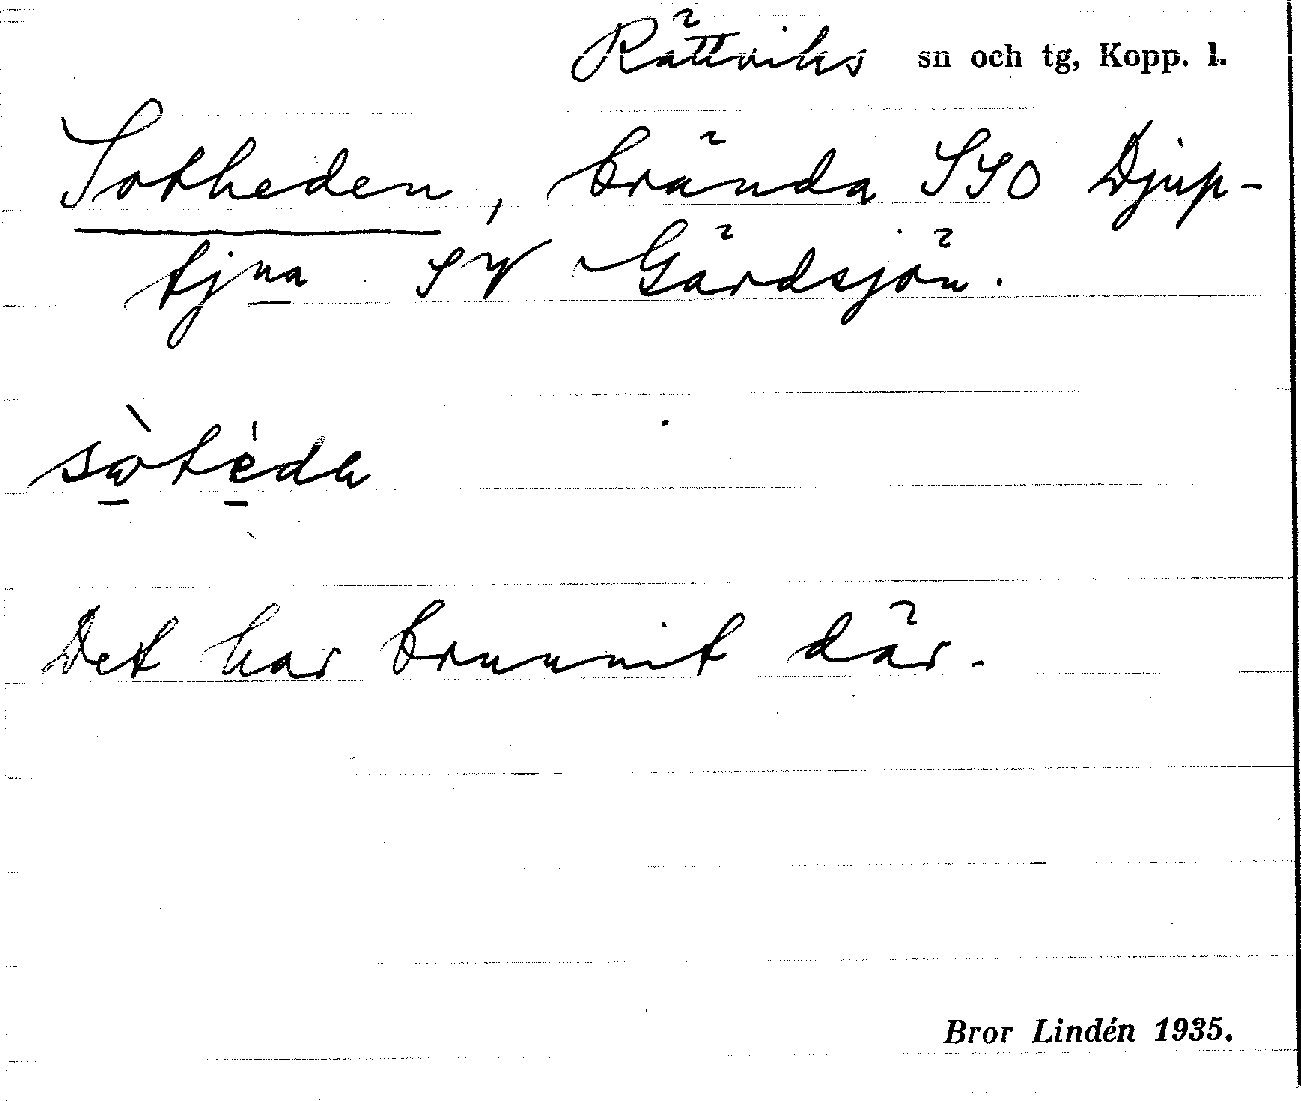 Rättviks sn och tg, Kopp. l.
Sotheden, brända SSO Djup-
tjna SV Gärdsjön.
sòtèda
Det har brunnit där.
Bror Lindén 1935.